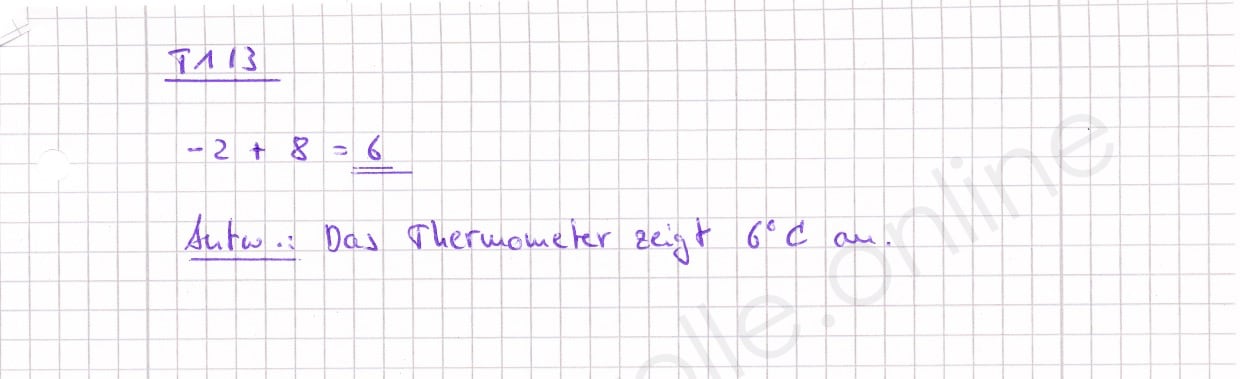 T1 / 3
-2 + 8 = 6
Antw.: Das Thermometer zeigt 6°C an.
olle.online